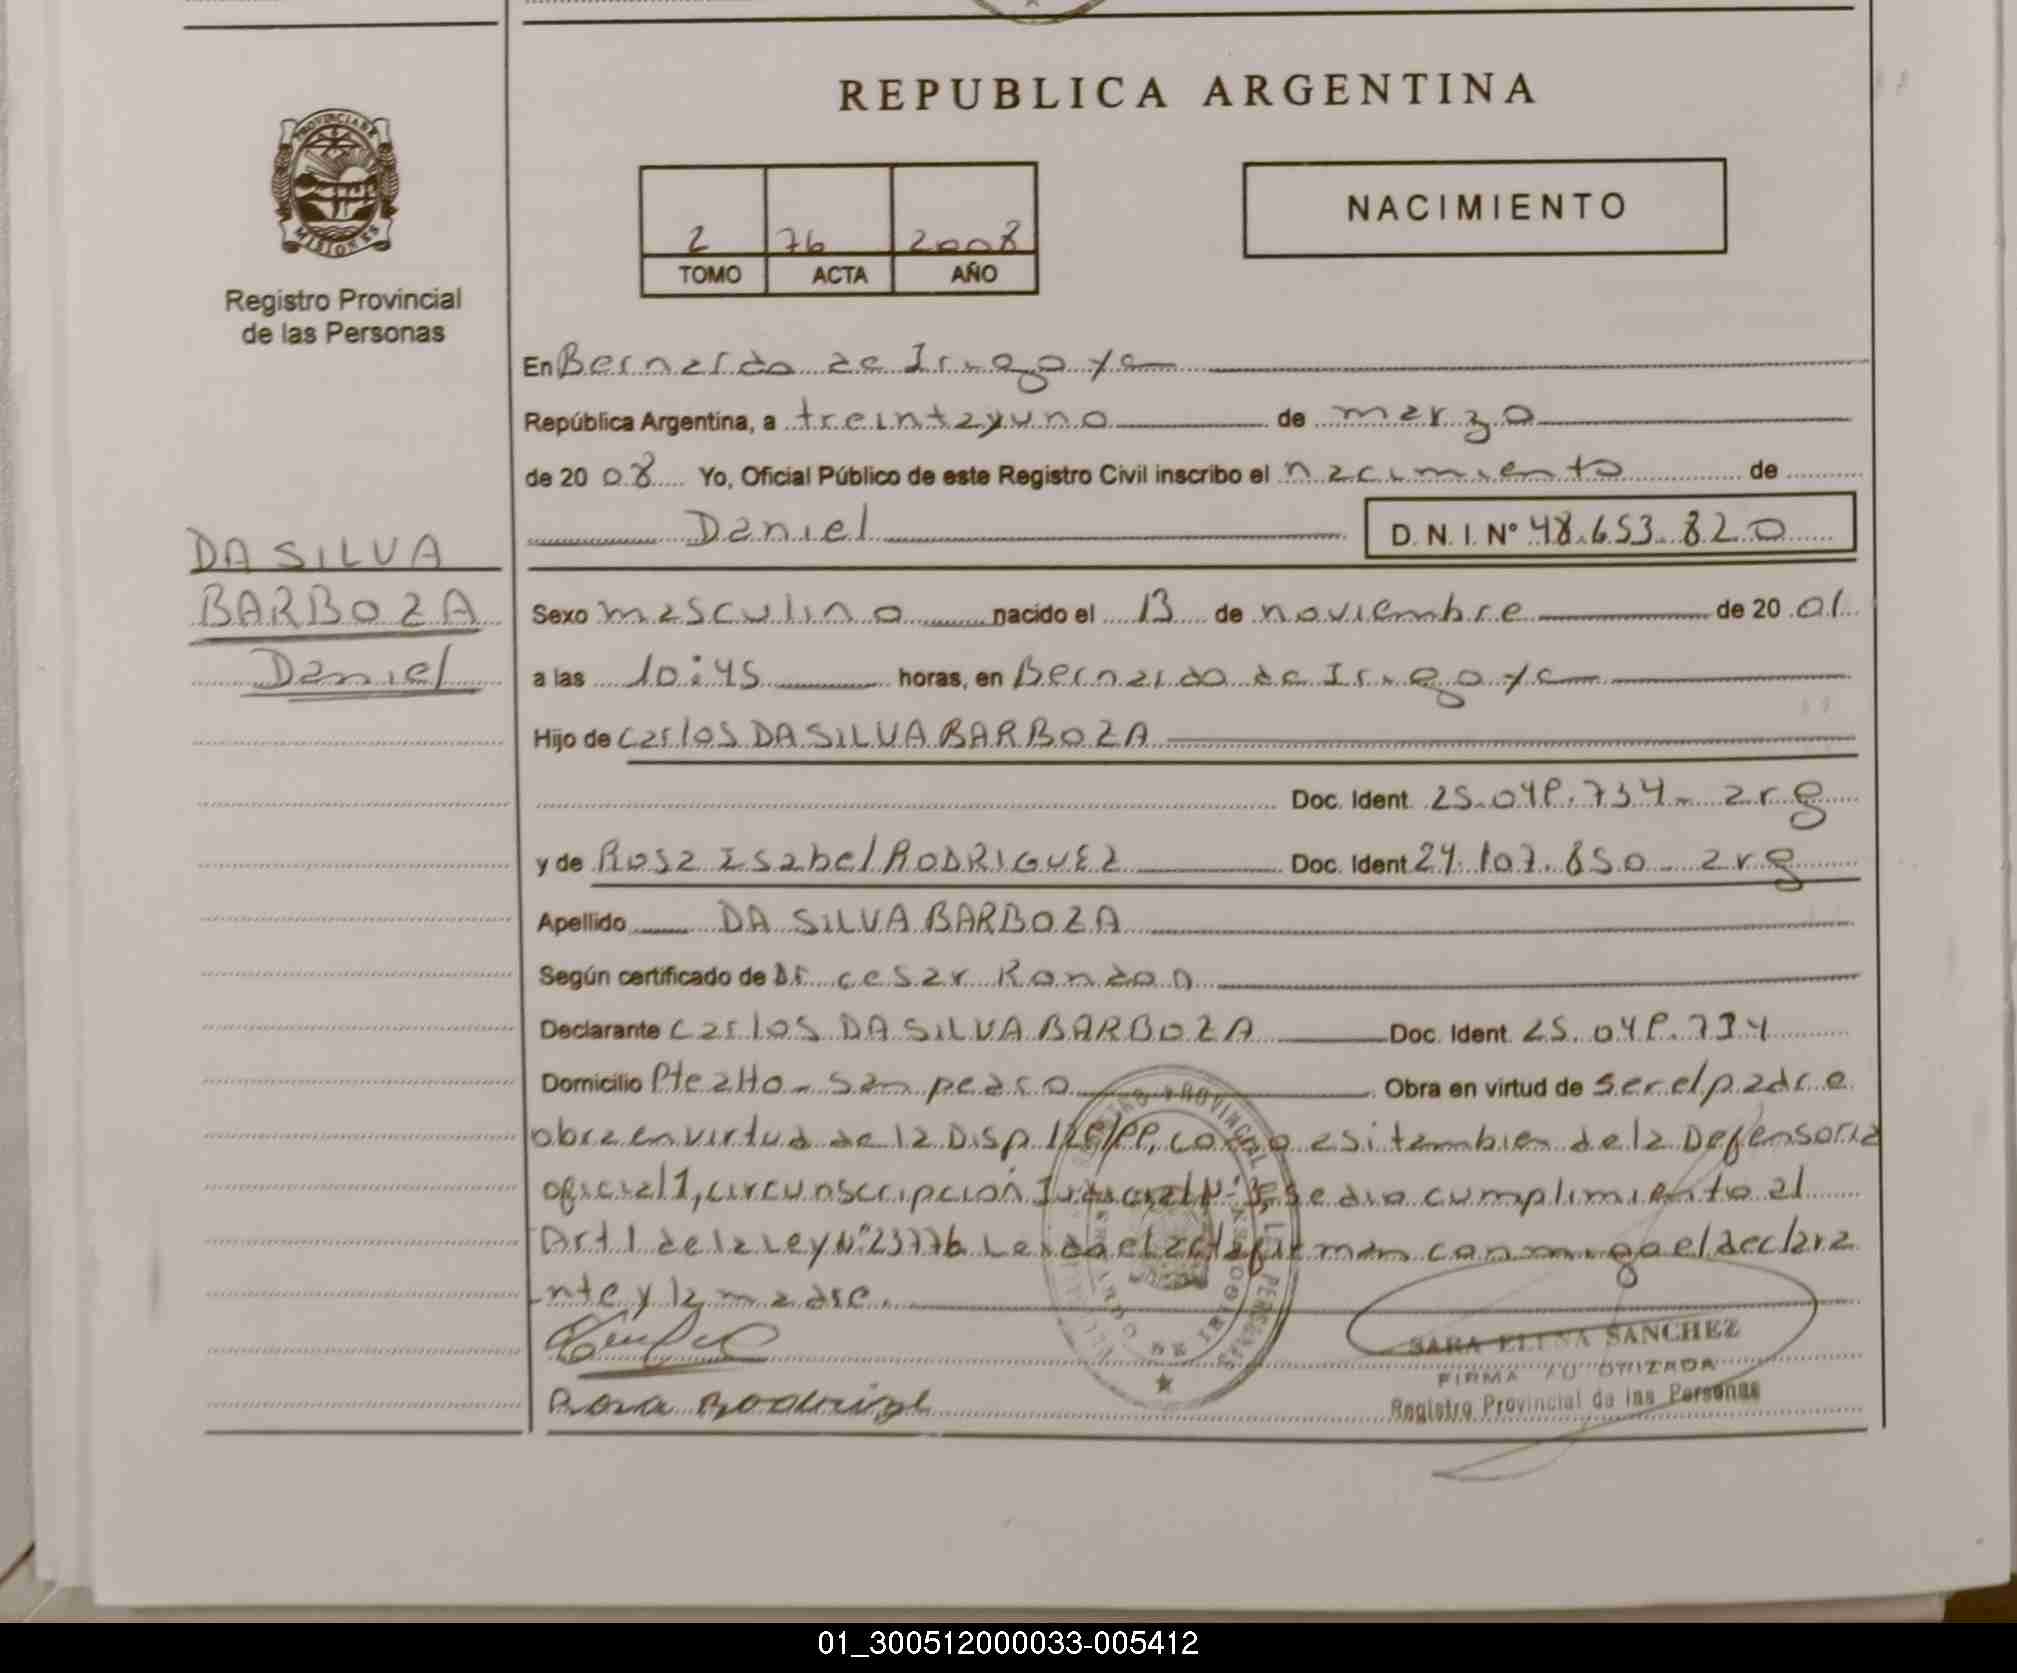 REPUBLICA ARGENTINA
PROVINCIA DE
MISIONES
Registro Provincial
de las Personas
NACIMIENTO
2 76 2008
TOMO ACTA AÑO
En Bernardo de Irigoye
República Argentina, a treintayuno de marzo
de 20 08 Yo, Oficial Público de este Registro Civil inscribo el nacimiento de
Daniel D. N. I. Nº 48.653.820
DA SILVA
BARBOZA
Daniel
Sexo masculino nacido el 13 de noviembre de 20 01
a las 10:45 horas, en Bernardo de Irigoye
Hijo de Carlos DA SILVA BARBOZA
Doc. Ident. 25.048.734- arg
y de Rosa Isabel RODRIGUEZ Doc. Ident 24.107.850- arg
Apellido DA SILVA BARBOZA
Según certificado de Dr. Cesar Rondon
Declarante Carlos DA SILVA BARBOZA Doc. Ident. 25.048.734
Domicilio Pte alto- San pedro Obra en virtud de ser el padre
obra en virtud de la Disp. como asi tambien de la Defensoria
oficial 1, circunscripcion Judicial Nº 3, se dio cumplimiento al
Art 1 de la Ley Nº 23776 Leida el acta firman conmigo el declara
nte y la madre.
Rosa Rodrigez
SARA ELENA SANCHEZ
FIRMA AUTORIZADA
Registro Provincial de las Personas
01_300512000033-005412